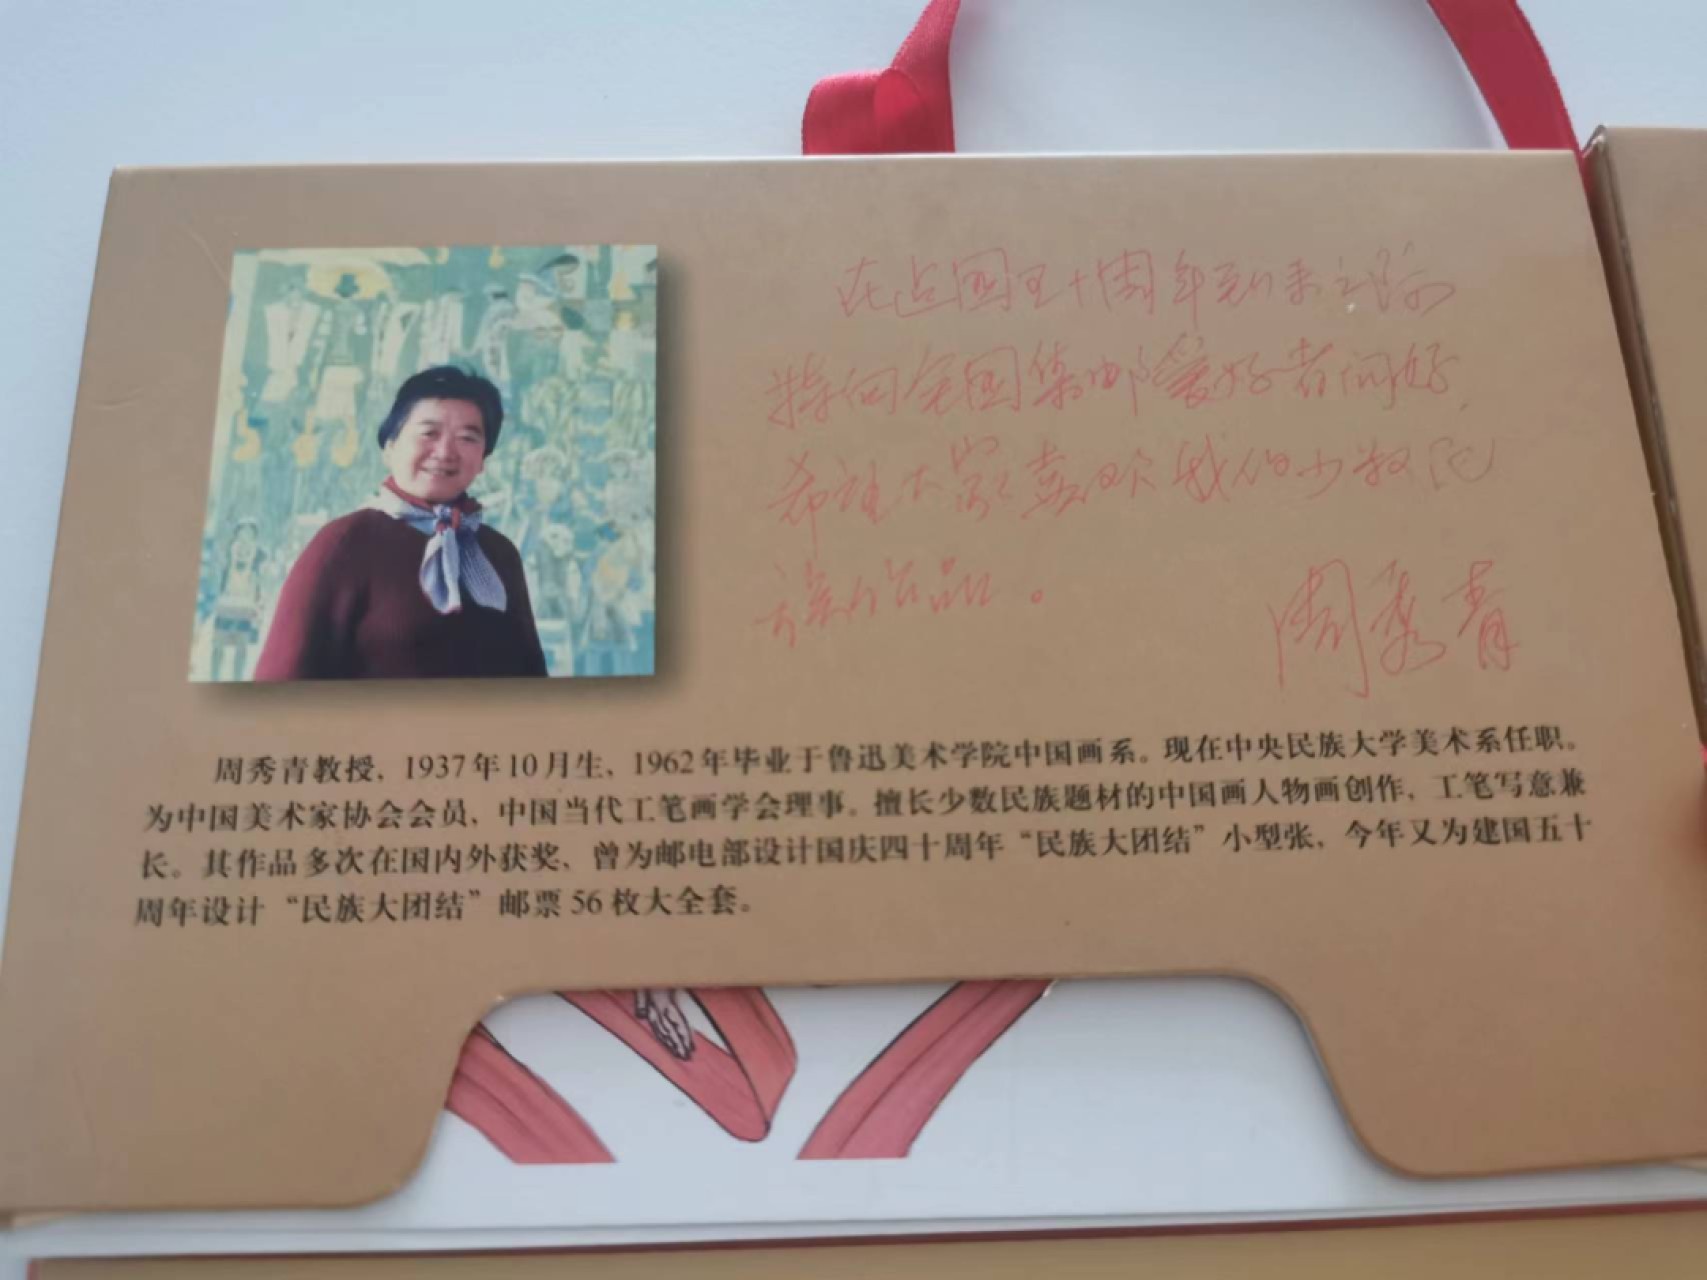 在建国五十周年到来之际
特向全国集邮爱好者问好
希望大家喜欢我的少数民
族作品。
周秀青
周秀青教授，1937年10月生、1962年毕业于鲁迅美术学院中国画系。现在中央民族大学美术系任职。
为中国美术家协会会员，中国当代工笔画学会理事。擅长少数民族题材的中国画人物画创作，工笔写意兼
长。其作品多次在国内外获奖、曾为邮电部设计国庆四十周年“民族大团结”小型张，今年又为建国五十
周年设计“民族大团结”邮票56枚大全套。